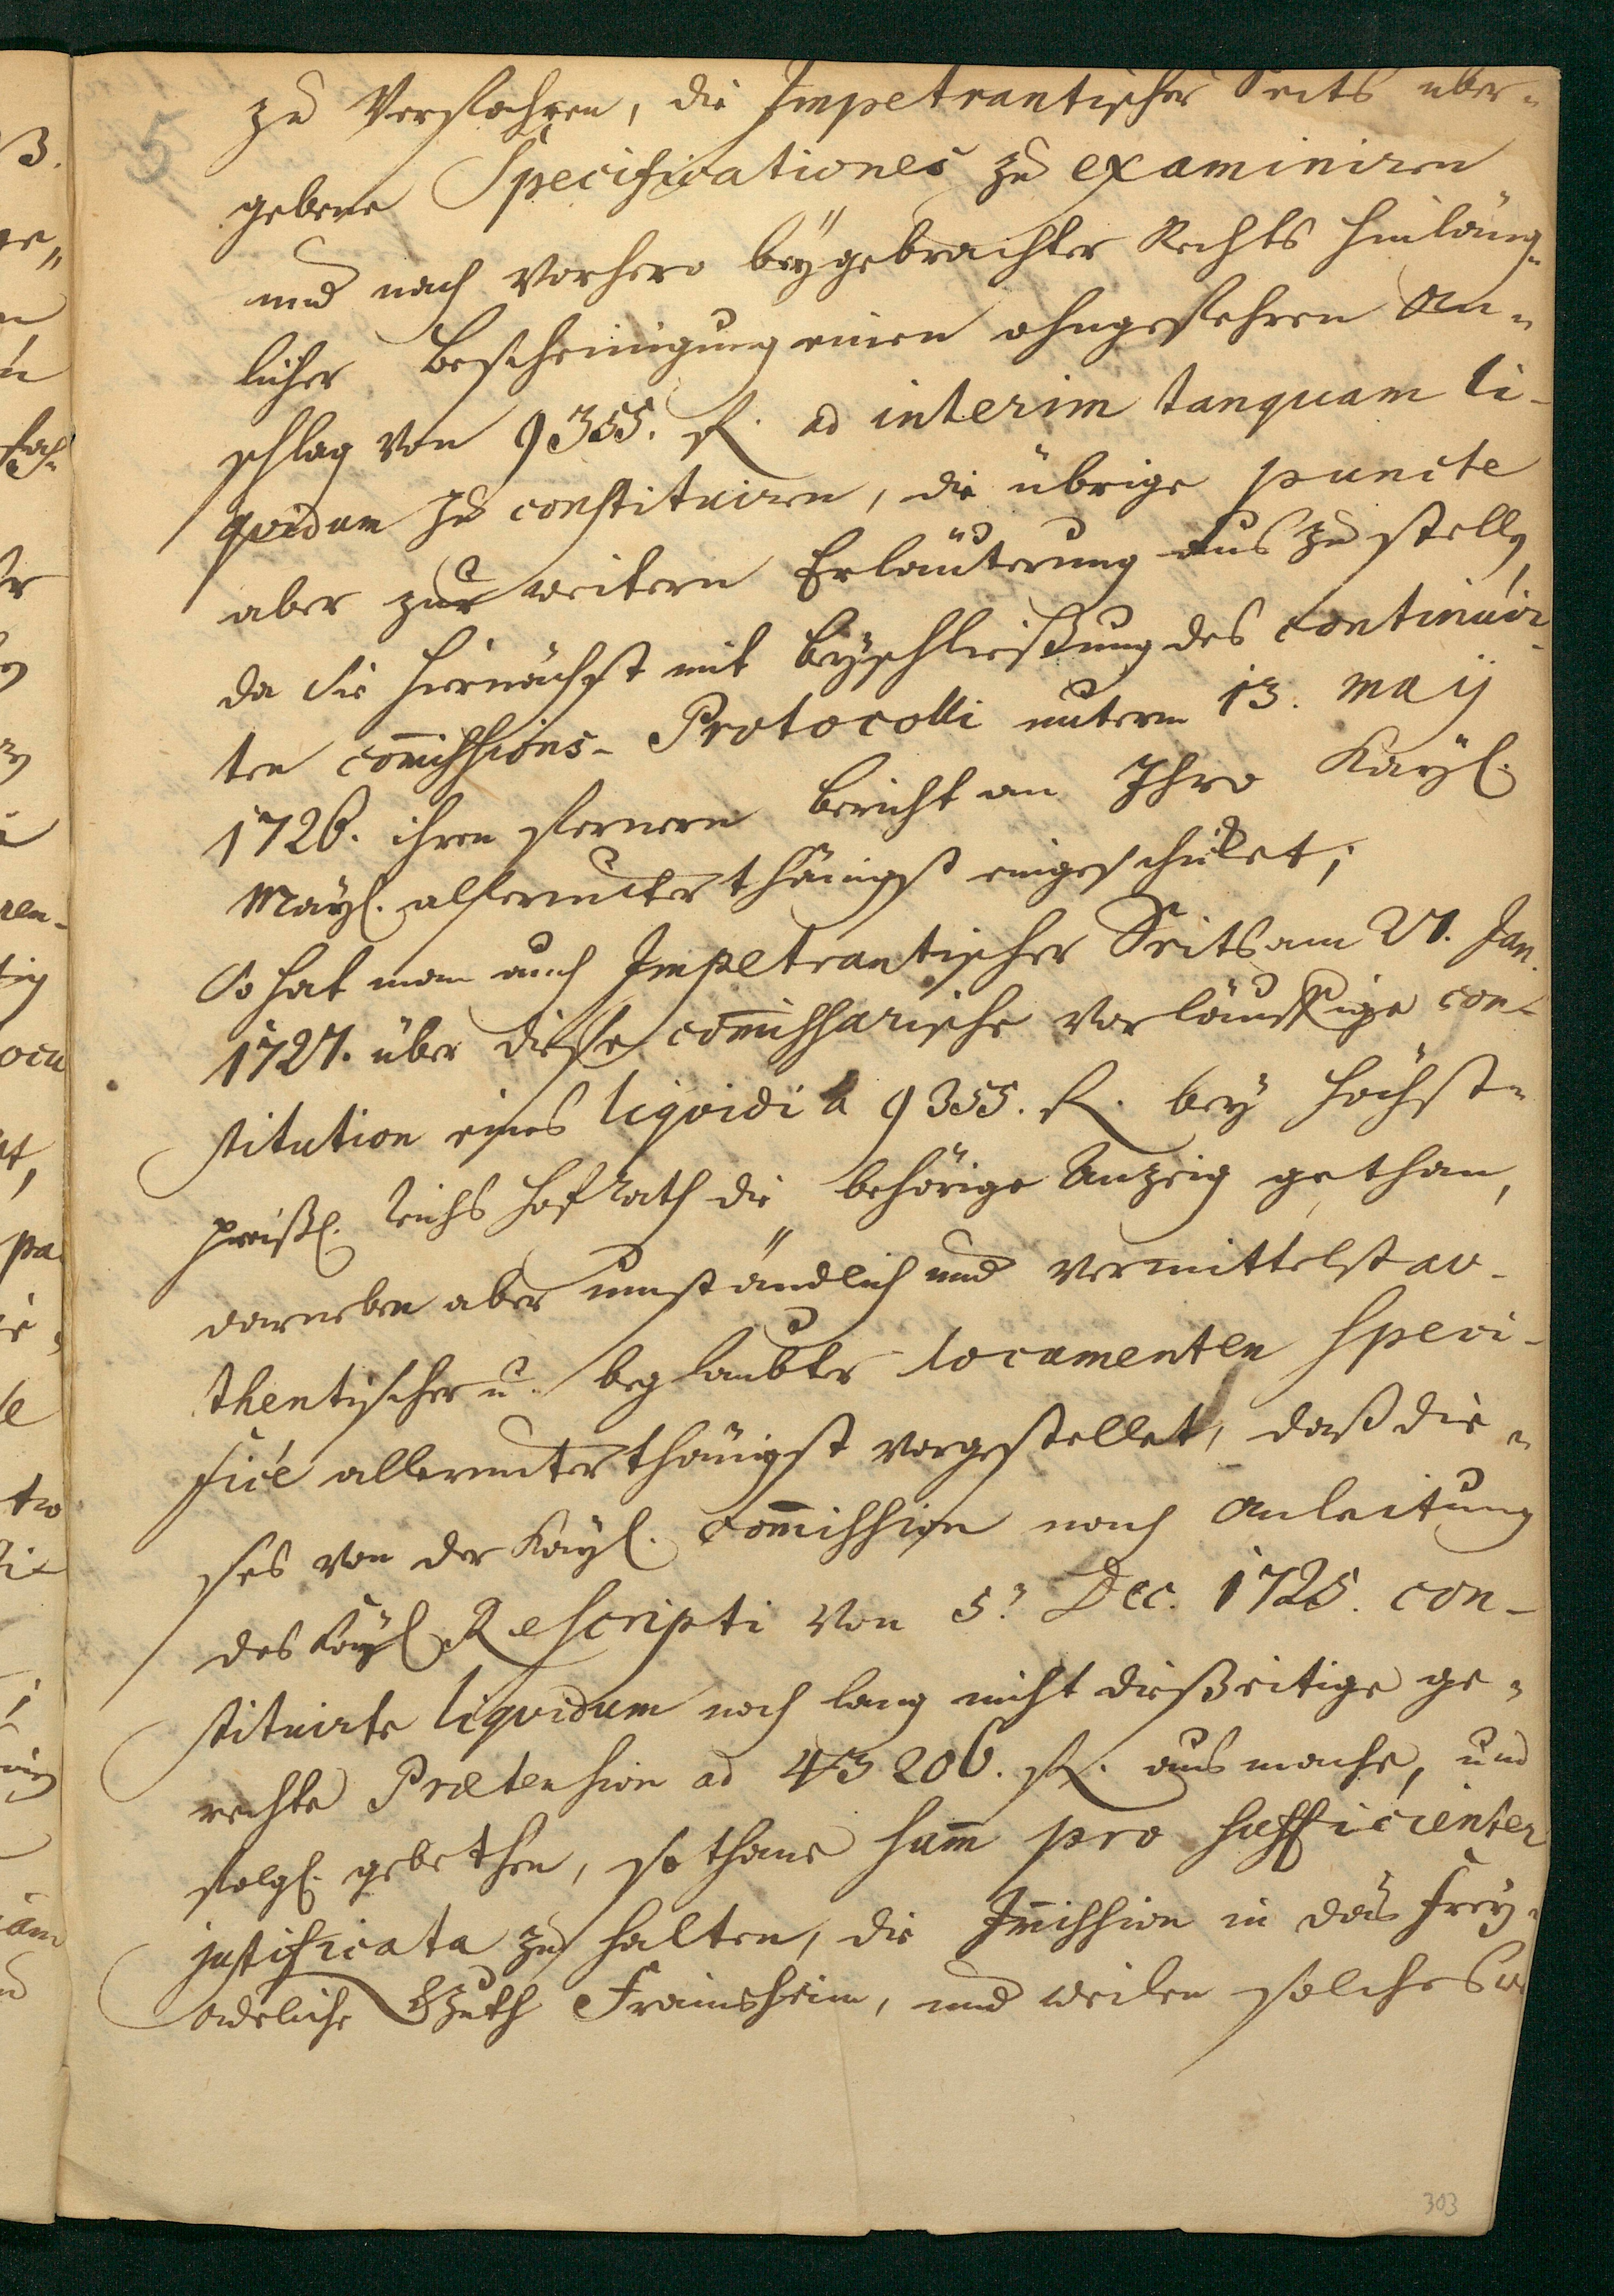 5
zu Verfahren, die Impetrantischer Seits über-
gebene Specificationes zu examiniren
und nach vorhero beÿgebrachter Rechts hinläng-
licher Bescheinigung einen ohngefehren An-
schlag von 9355. fl. ad interim tanquam li-
quidum zu constituiren, die übrige puncte
aber zur weitern Erläuterung aus zu stellen,
da sie hiernächst mit beÿschließung des continuir-
ten com̄issions-Protocolli unterm 13. Maij
1726. ihren fernern bericht an Ihro Kaÿl.
Maÿl. allerunterthänigst eingeschiket;
So hat man auch Impetrantischer Seits am 27. Jan.
1727. über diese com̄issarische vorläuffige con-
stitution eines liquidi à 9355. fl. beÿ höchst-
preißl. Reichs Hof Rath die behörige Anzeig gethan,
darneben aber umständlich und vermittelst au-
thentischer u. beglaubter documenten speci-
ficè allerunterthänigst vorgestellet, daß die-
ses von der Kaÿl. Com̄ission nach Anleitung
des Kaÿl. Rescripti von 5.t Dec. 1725. con-
stituirte liquidum noch lang nicht dießseitige ge-
rechte Prætension ad 43206. fl. ausmache, und
folgl. gebethen, sothane sum̄ pro sufficienter
justificata zu halten, die Im̄ission in das Freÿ-
adeliche Guth Fraimsheim, und weilen solches
303